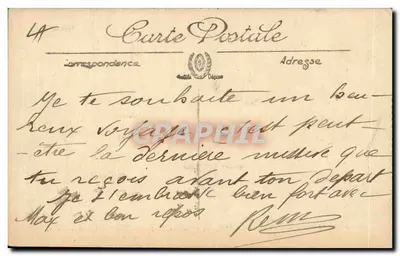 Carte Postale
Correspondance
Adresse
Je te souhaite un heu-
reux voyage c'est peut-
être la dernière missive que
tu reçois avant ton départ
Je t'embrasse bien fort avec
Max et bon repos
CPAPHIL